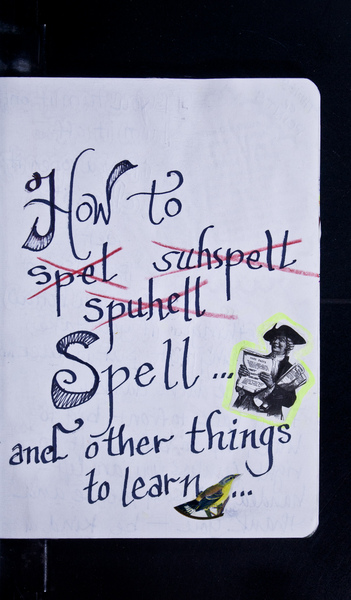 How to
spel suhspell
spuhell
Spell...
and other things
to learn...